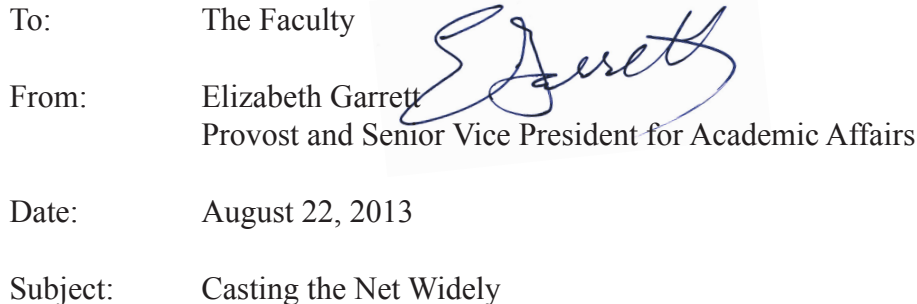 To: The Faculty
E Garrett
From: Elizabeth Garrett
Provost and Senior Vice President for Academic Affairs
Date: August 22, 2013
Subject: Casting the Net Widely